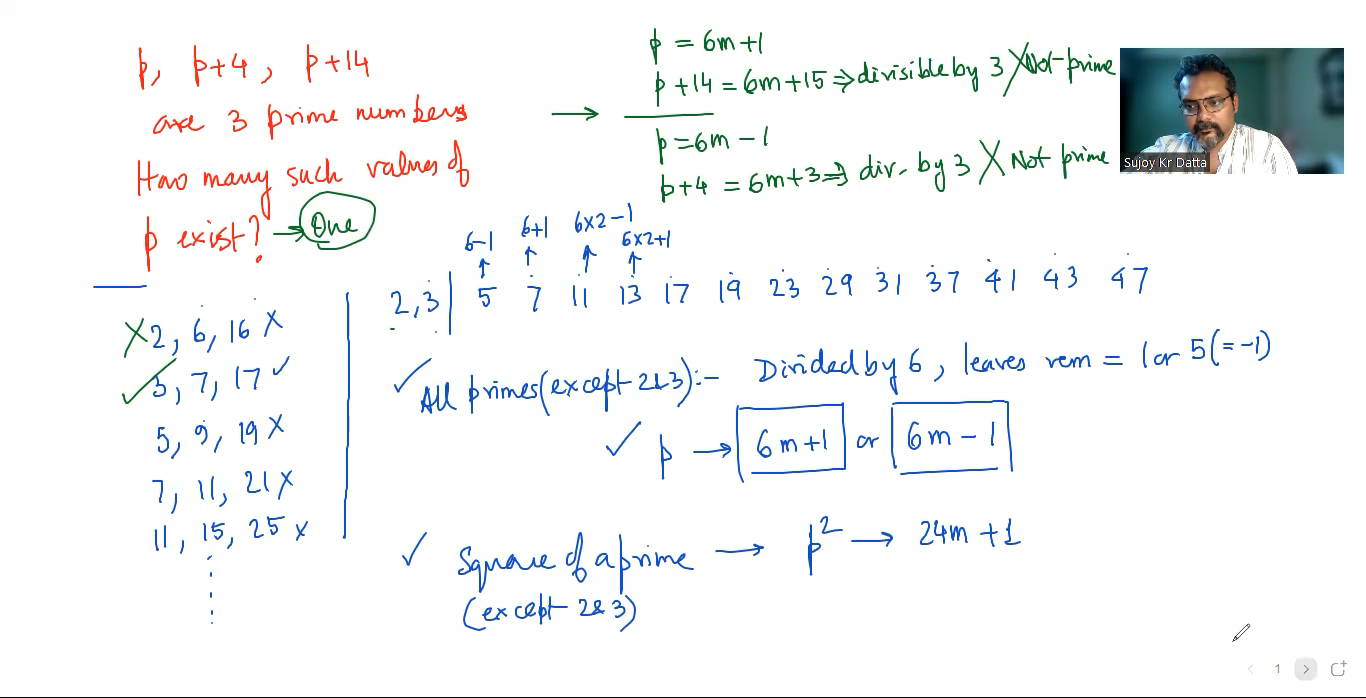 p, p+4, p+14
are 3 prime numbers
How many such values of
p exist? → One
p = 6m+1
p+14 = 6m+15 ⇒ divisible by 3 X Not prime
p = 6m-1
p+4 = 6m+3 ⇒ div. by 3 X Not prime
Sujoy Kr Datta
X 2, 6, 16 X
✓ 3, 7, 17 ✓
5, 9, 19 X
7, 11, 21 X
11, 15, 25 X
6-1 6+1 6x2-1 6x2+1
2, 3 | 5 7 11 13 17 19 23 29 31 37 41 43 47
✓ All primes (except 2&3):- Divided by 6, leaves rem = 1 or 5(=-1)
✓ p → 6m+1 or 6m-1
✓ Square of a prime → p² → 24m+1
(except 2&3)
1